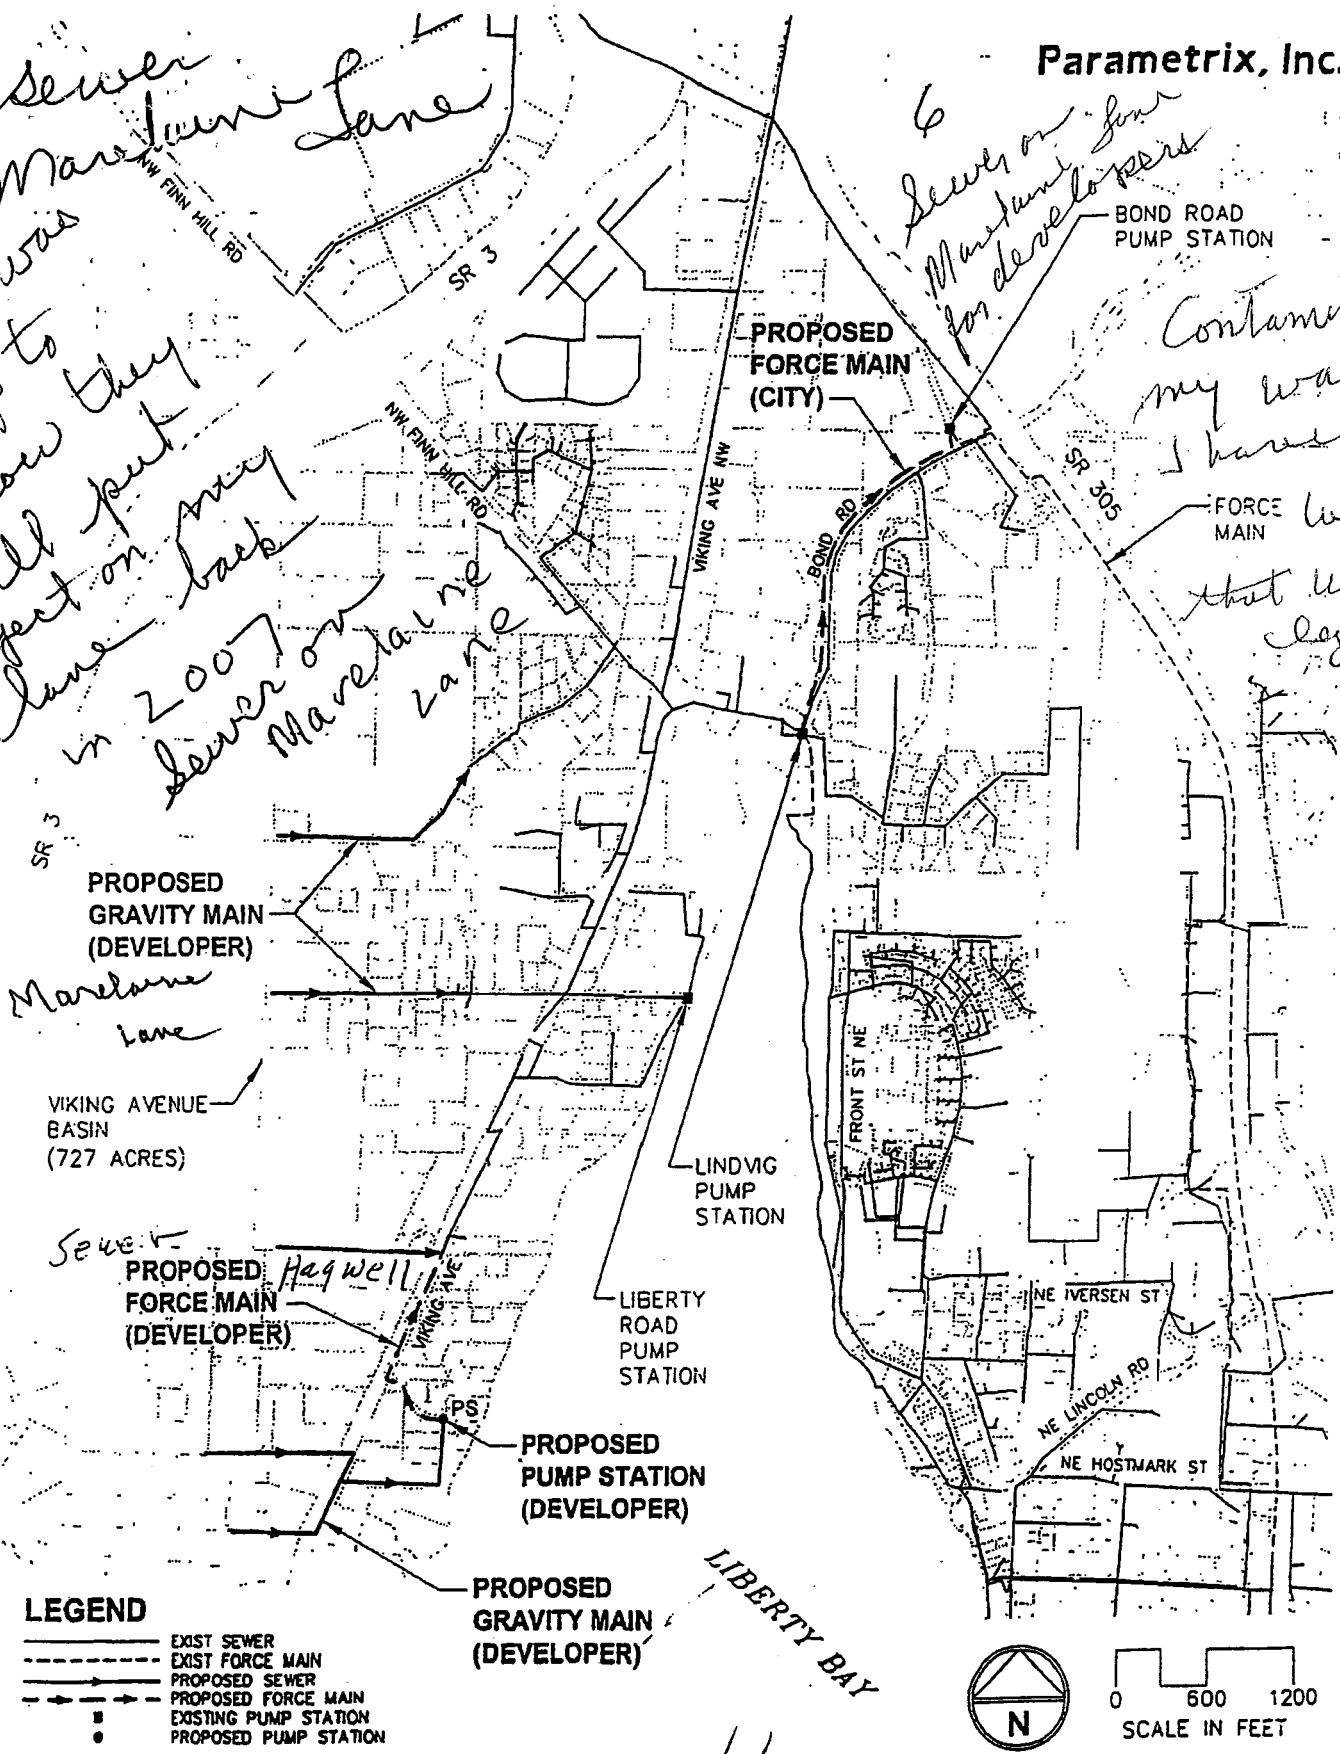 Parametrix, Inc.
sewer
Marelaine
Lane
was
to
they
put
on my
lane back
in 2007
Sewer on
Marelaine
Lane
6
Sewer on
Marelaine for
for developers
my
I have
that
NW FINN HILL RD
SR 3
BOND ROAD
PUMP STATION
PROPOSED
FORCE MAIN
(CITY)
NW FINN HILL RD
VIKING AVE NW
BOND RD
SR 305
FORCE
MAIN
SR 3
PROPOSED
GRAVITY MAIN
(DEVELOPER)
Marelaine
Lane
VIKING AVENUE
BASIN
(727 ACRES)
FRONT ST NE
LINDVIG
PUMP
STATION
Sewer
Hagwell
PROPOSED
FORCE MAIN
(DEVELOPER)
VIKING AVE
LIBERTY
ROAD
PUMP
STATION
NE IVERSEN ST
NE LINCOLN RD
NE HOSTMARK ST
PS
PROPOSED
PUMP STATION
(DEVELOPER)
PROPOSED
GRAVITY MAIN
(DEVELOPER)
LIBERTY BAY
LEGEND
EXIST SEWER
EXIST FORCE MAIN
PROPOSED SEWER
PROPOSED FORCE MAIN
EXISTING PUMP STATION
PROPOSED PUMP STATION
N
0 600 1200
SCALE IN FEET